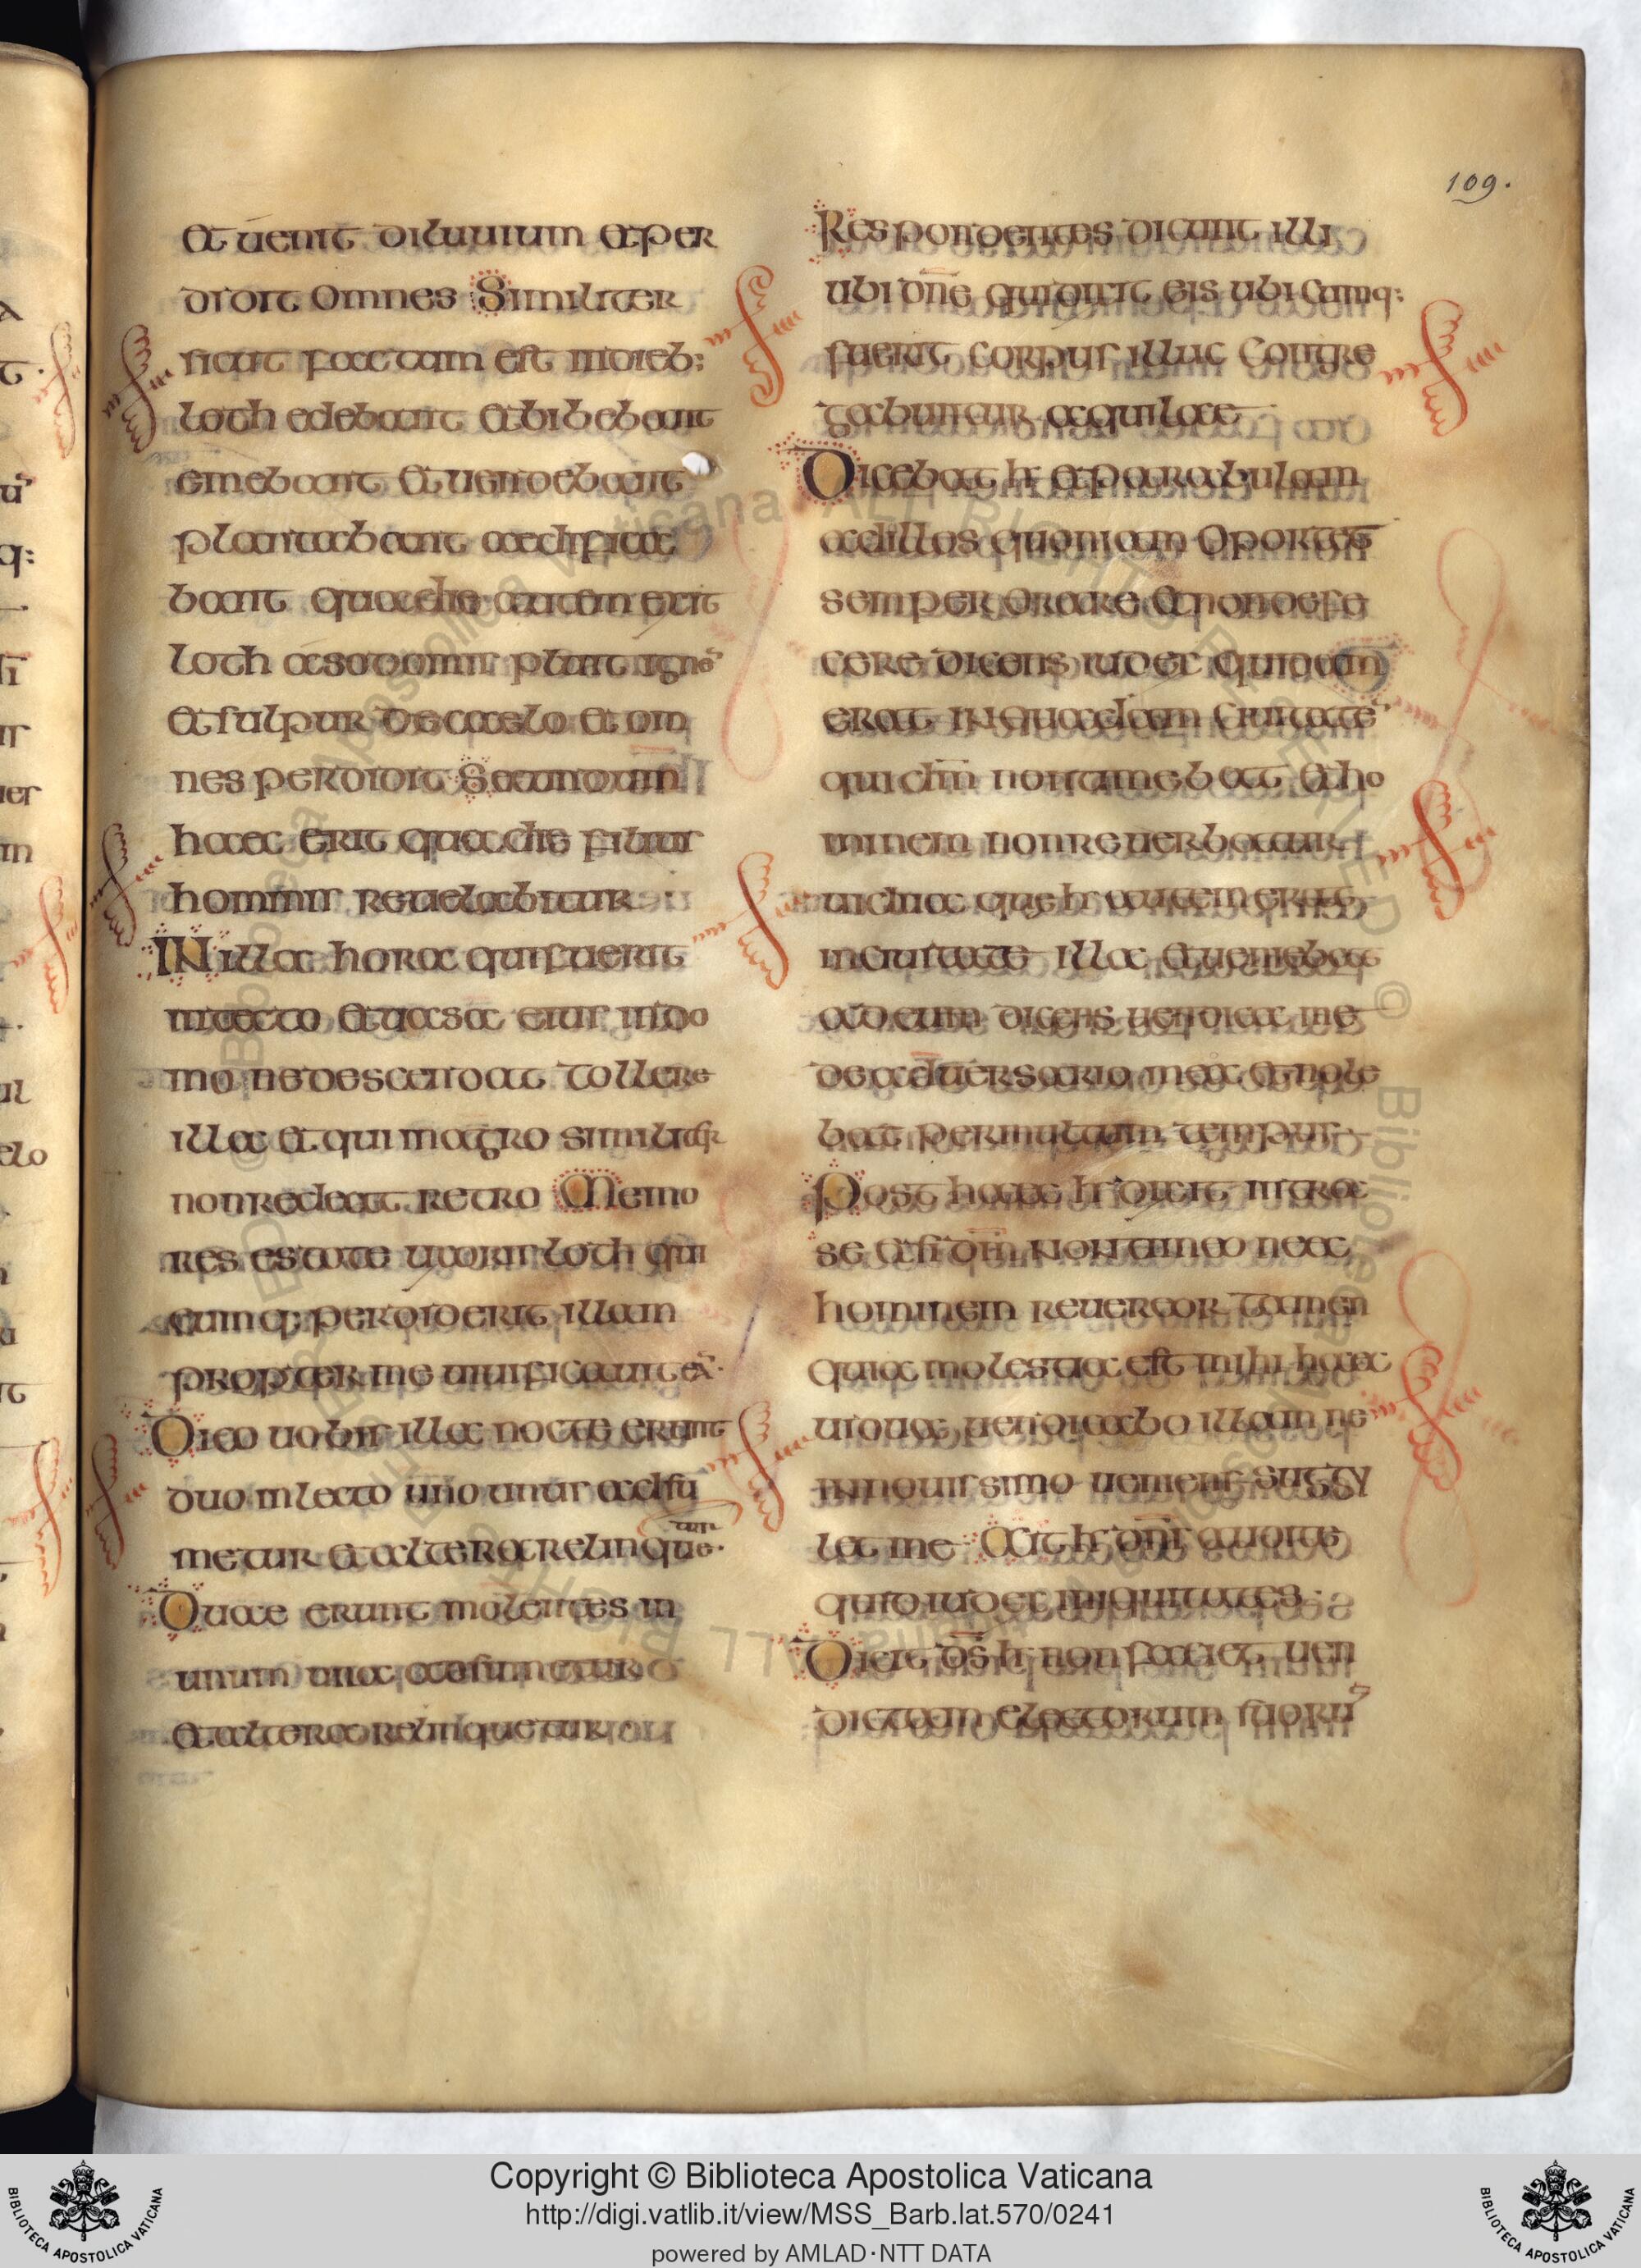 109.
et uenit diluuium et per
didit omnes Similiter
sicut factum est in dieb:
loth edebant et bibebant
emebant et uendebant
plantabant aedifica
bant qua die autem exit
loth a sodomis pluit igne
et sulpur de caelo et om
nes perdidit Secundum
haec erit qua die filius
hominis reuelabitur
IN illa hora qui fuerit
in tecto et uasa eius in do
mo ne descendat tollere
illa et qui in agro similiter
non redeat retro Memo
res estote uxoris loth qui
cumq; perdiderit illam
propter me uiuificauit
Dico uobis illa nocte erunt
duo in lecto uno unus adsu
metur et altera relinque
Duae erunt molentes in
unum una adsumetur
et altera relinquetur
Respondentes dicunt illi
ubi dn̄e qui dixit eis ubicumq:
fuerit corpus illuc congre
gabuntur aquilae
Dicebat ħ et parabulam
ad illos quoniam oportet
semper orare et non defe
cere dicens iudex quidam
erat in quadam ciuitate
qui dm̄ non timebat et ho
minem non reuerbatur
uidua que ħ autem erat
in ciuitate illa et ueniebat
ad eum dicens uendica me
de aduersario meo et nole
bat per multum tempus
Post haec ħ dixit intra
se etsi dm̄ non timeo nec
hominem reuereor tamen
quia molesta est mihi haec
uidua uendicabo illam ne
in nouissimo ueniens suggy
lat me Ait ħ dn̄s audite
quid iudex iniquitates
Dicit d̄s ħ non faciet uen
dictam electorum suorū
Copyright © Biblioteca Apostolica Vaticana
http://digi.vatlib.it/view/MSS_Barb.lat.570/0241
powered by AMLAD·NTT DATA
BIBLIOTECA APOSTOLICA VATICANA
BIBLIOTECA APOSTOLICA VATICANA